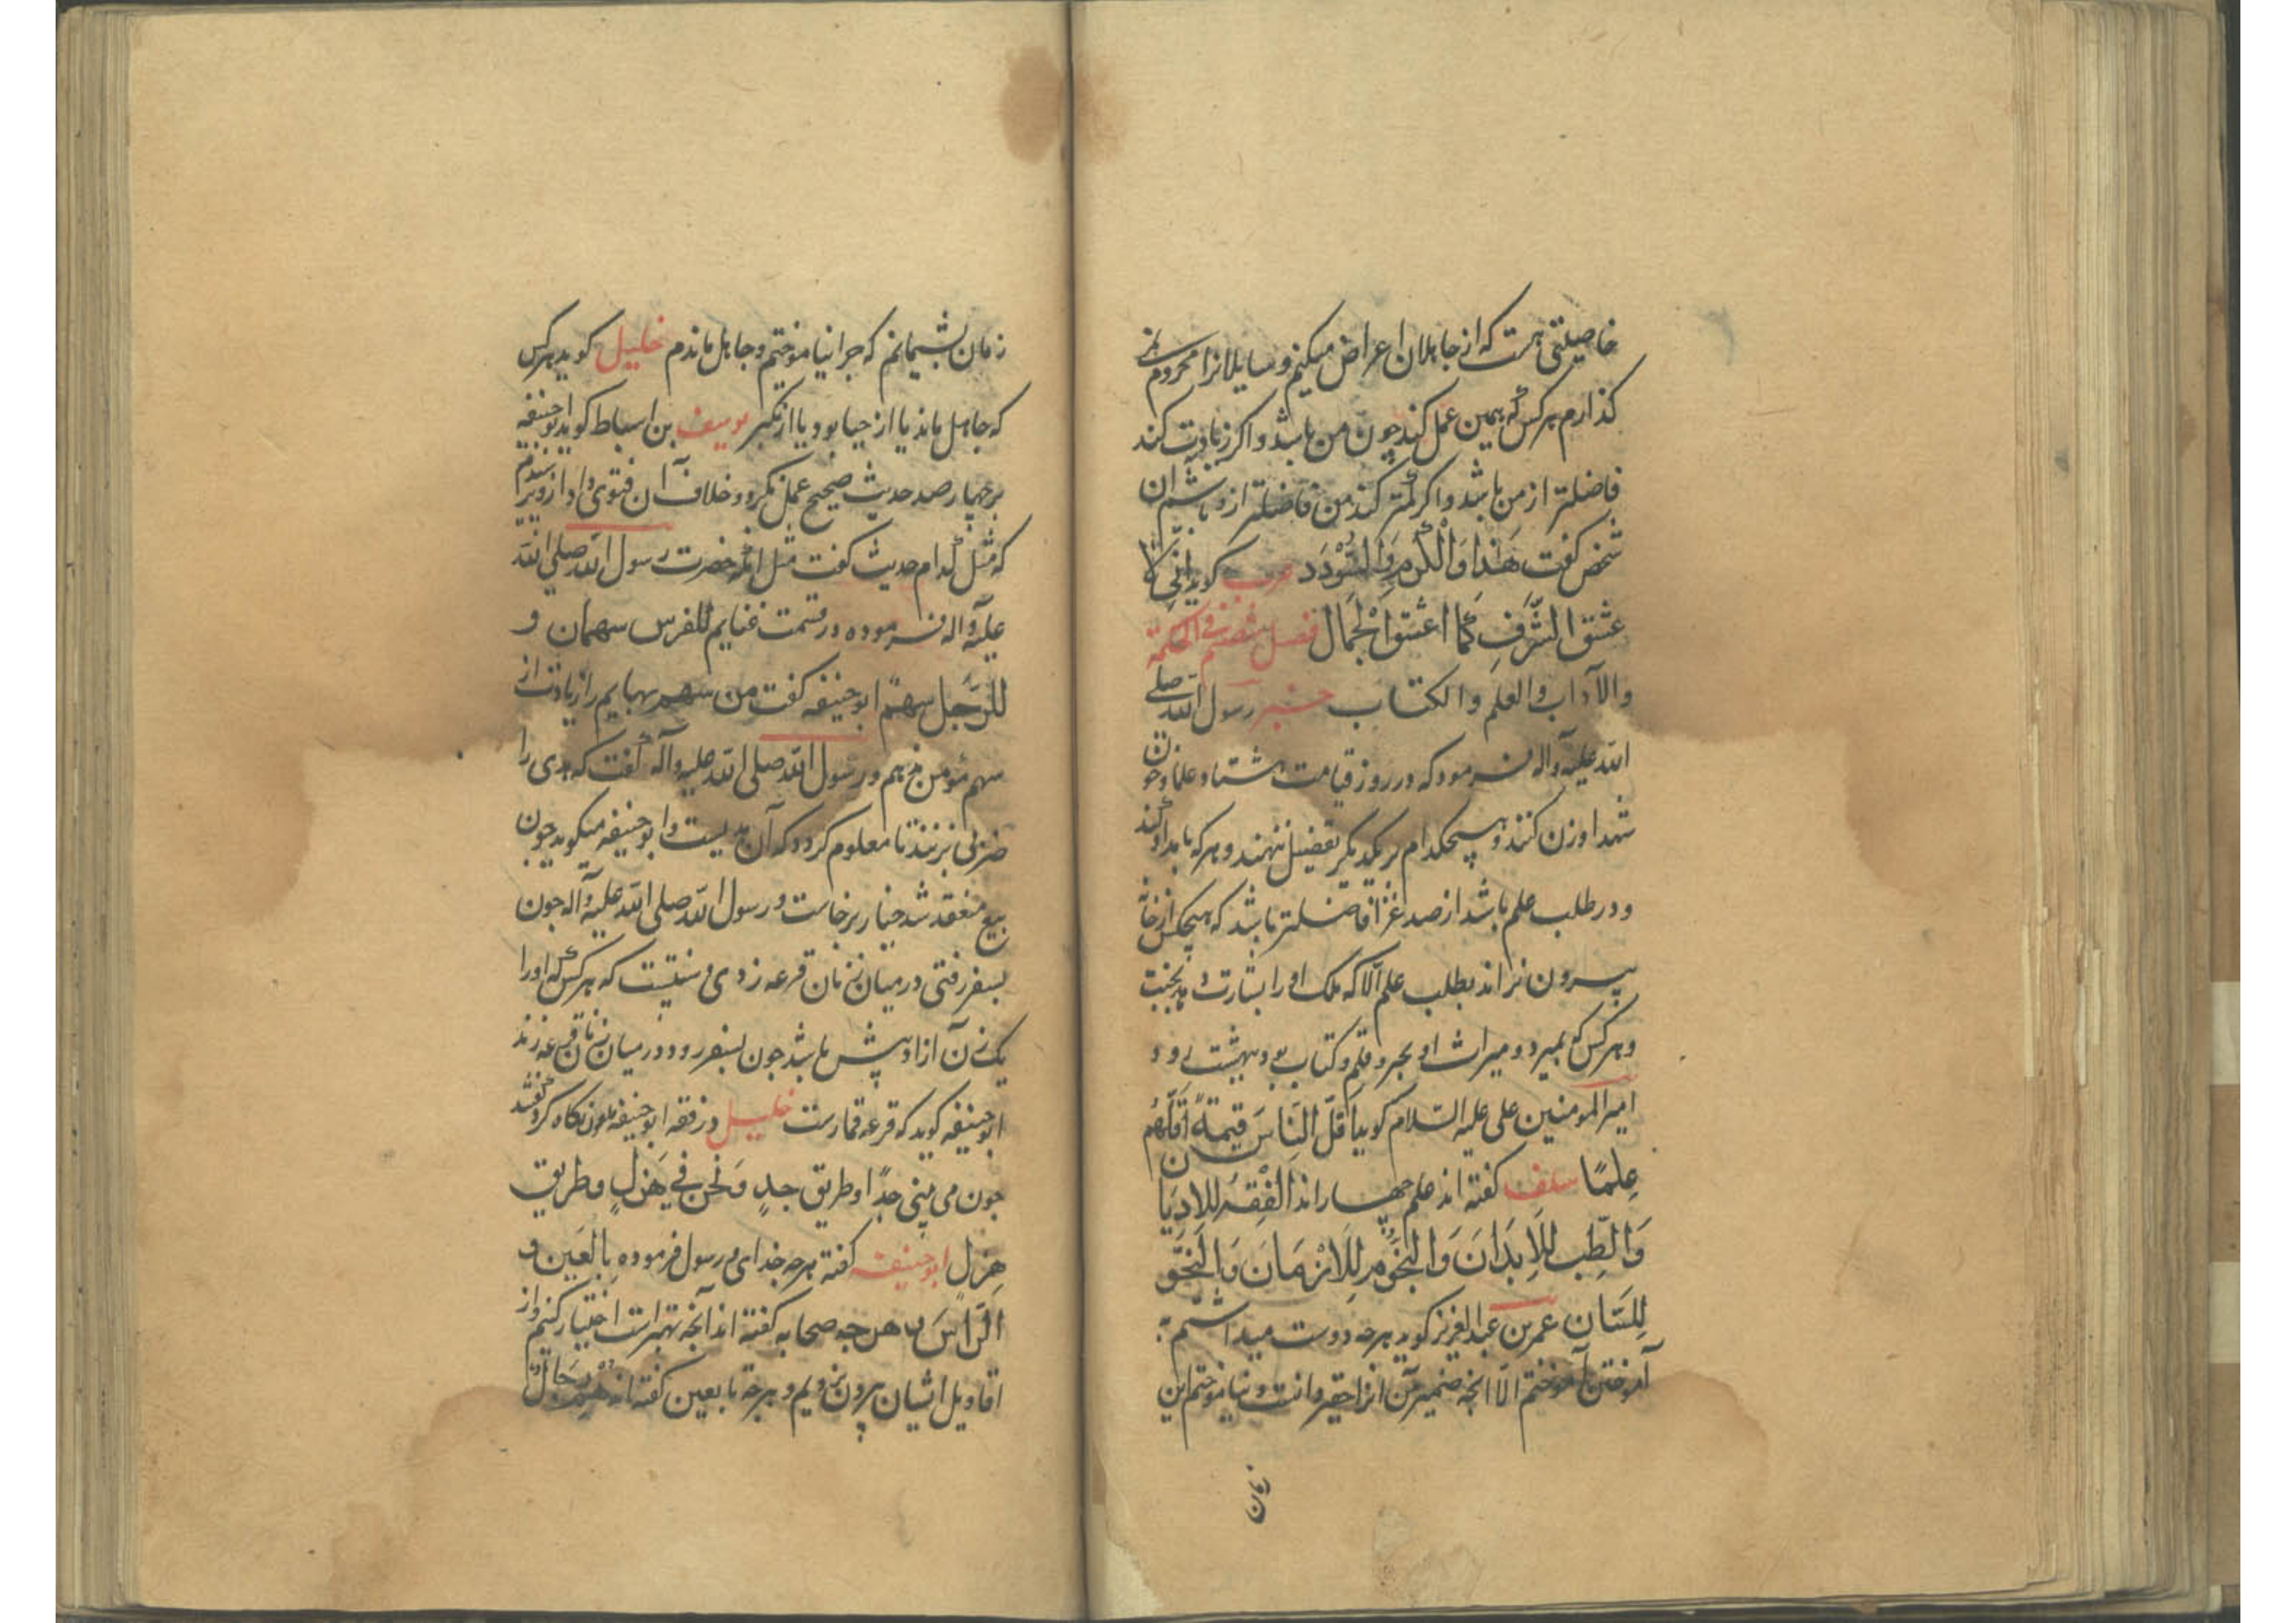 خاصیتی هست که از جاهلان اعراض میکنم و سایلانرا محروم نمی
کذارم هر کس که همین عمل کند چون من باشد و اکر زیادت کند
فاضلتر از من باشد و اکر کمتر کند من فاضلتر ازو باشم ان
شخص کفت هَذا وَالله الکَرَمِ وَالسُّوْدَد عرب کوید اِنّی لَا
عشق الشَّرَفِ کَمَا اعشق الْجَمَال فصل ششم فی الحکمة
والآداب والعلم والکتاب خبر رسول الله صلی
الله علیه وآله فرمود که در روز قیامت مداد علما و خون
شهدا وزن کنند و هیچکدام بر یکدیکر تفضیل ننهند و هر که بامداد کند
و در طلب علم باشد از صد غزا فاضلتر باشد که هیچکس از خانه
بیرون نراند بطلب علم الّا که ملک او را بشارت دهد بجنت
و هر کس که بمیرد و میراث او محبره و قلم و کتاب بود بهشت رود
امیر المومنین علی علیه السّلام کوید اَقَلّ النَّاسَ قیمةً اَقَلّهُم
عِلمًا سلف کفته اند علم چهار اند الْفِقْهُ لِلاَدیان
وَالطِّب لِلاِبدَانَ وَالنجُوُمِ لِلَازمَانَ وَالنحَّو
لِلِسَّان عمر بن عبد العزیز کوید هر چه دوست میداشتم به
آموختن آموختم الّا انچه ضمیر من انرا حقیر دانست و نیاموختم این
زمان
زمان پشیمانم که چرا نیاموختم و جاهل ماندم خلیل کوید هر کس
که جاهل ماند یا از حیا بود یا از تکبر یوسف بن اسباط کوید ابو حنیفه
بر چهار صد حدیث صحیح عمل نکرد و خلاف آن فتوی داد ازو پرسیدم
که مثل کدام حدیث کفت مثل انکه حضرت رسول الله صلی الله
علیه وآله فرموده در قسمت غنایم للفرس سهمان و
للرَّجل سهمٌ ابو حنیفه کفت من سهم بهایم را زیادت از
سهم مؤمن ندهم و رسول الله صلی الله علیه وآله کفت که هدی را
ضربی بزنند تا معلوم کردد که آن هدیست و ابو حنیفه میکوید چون
بیع منعقد شد خیار برخاست و رسول الله صلی الله علیه وآله چون
بسفر رفتی در میان زنان قرعه زدی و سنتست که هر کس که او را
یک زن آزاد بیش باشد چون بسفر رود در میان زنان قرعه زند
ابو حنیفه کوید که قرعه قمارست خلیل در فقه ابو حنیفه نکاه کرد کفتند
چون می بینی جدًّا و طریق جدٍ وَنَحن فی هَزلٍ و طریق
هزلٍ ابو حنیفه کفته هر چه خدای و رسول فرموده بِالعَین و
الرَّاسَ و هر چه صحابه کفته اند آنچه بهتر است اختیار کنیم و از
اقاویل ایشان بیرون نرویم و هر چه تابعین کفته اند هُم رِجَالٌ